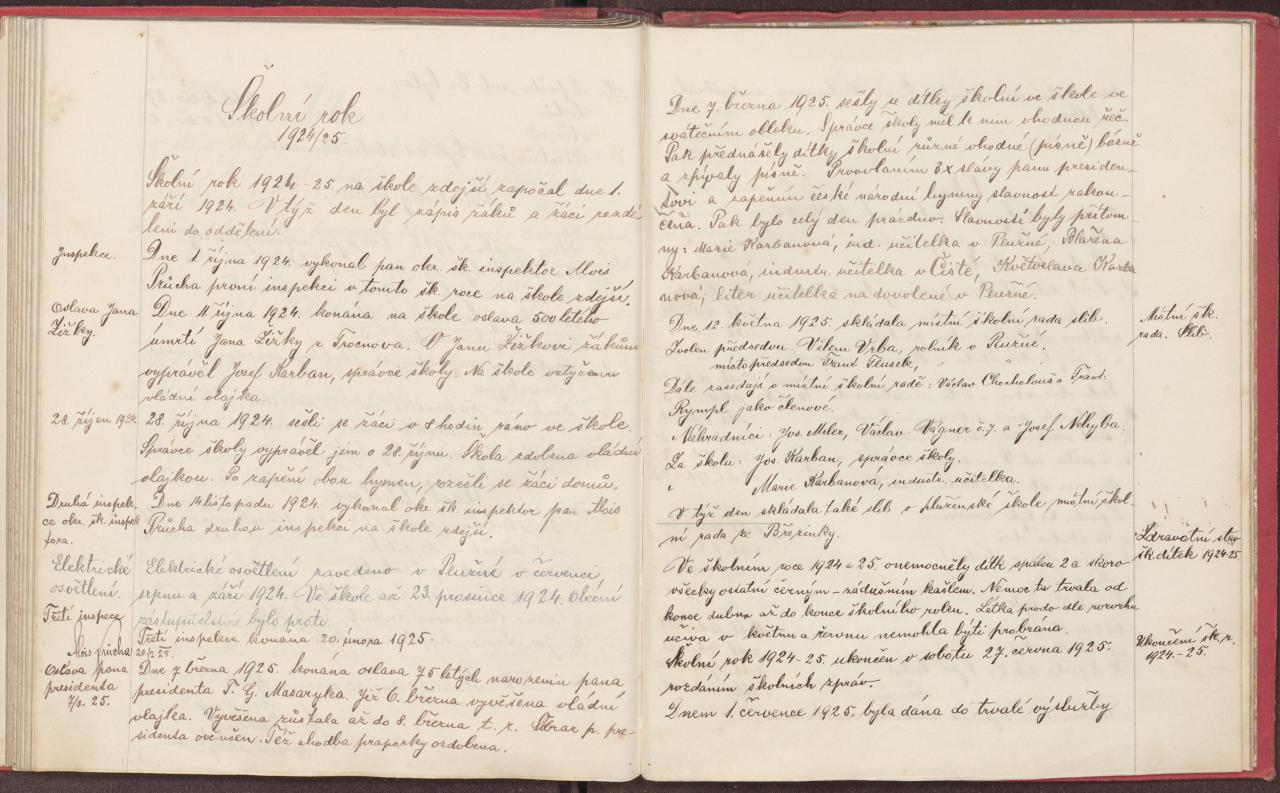 Školní rok
1924/25.
Školní rok 1924-25. na škole zdejší započal dne 1.
září 1924. V týž den byl zápis žáků a žáci rozdě
leni do oddělení.
Inspekce.
Dne 1 října 1924. vykonal pan okr. šk. inspektor Alois
Průcha první inspekci v tomto šk. roce na škole zdejší.
Oslava Jana
Žižky.
Dne 11 října 1924. konána na škole oslava 500 letého
úmrtí Jana Žižky z Trocnova. O Janu Žižkovi žákům
vypravěl Josef Karban, správce školy. Na škole vztyčena
vládní vlajka.
28. říjen 1924.
28. října 1924. sešli se žáci v 8 hodin ráno ve škole.
Správce školy vyprávěl jim o 28. říjnu. Škola zdobena vládní
vlajkou. Po zapění obou hymen, rozešli se žáci domů.
Druhá inspek-
ce okr. šk. inspek
tora.
Dne 14 listopadu 1924. vykonal okr. šk. inspektor pan Alois
Průcha druhou inspekci na škole zdejší.
Elektrické
osvětlení.
Elektrické osvětlení zavedeno v Plužné v červenci,
srpnu a září 1924. Ve škole až 23. prosince 1924. Obecní
zastupitelstvo bylo proti.
Třetí inspece
Třetí inspekce konána 20. února 1925.
Alois Průcha 20/2 25.
Oslava pana
presidenta
7/3. 25.
Dne 7 března 1925. konána oslava 75 letých narozenin pana
presidenta T. G. Masaryka. Již 6. března vyvěšena vládní
vlajka. Vyvěšena zůstala až do 8. března t. r. Obraz p. pre-
sidenta ověnčen. Též chodba praporky ozdobena.
Dne 7. března 1925. sešly se dítky školní ve škole ve
svátečním obleku. Správce školy měl k nim vhodnou řeč.
Pak přednášely dítky školní různé vhodné (písně) básně
a zpívaly písně. Provoláním 3x slávy panu presiden-
tovi a zapěním české národní hymny slavnost zakon-
čena. Pak bylo celý den prázdno. Slavnosti byly přítom-
ny: Marie Karbanová, ind. učitelka v Plužné, Blažena
Karbanová, industr. učitelka v Čisté, Květoslava Karba
nová, liter učitelka na dovolené v Plužné.
Místní šk.
rada. Slib.
Dne 12. května 1925. skládala místní školní rada slib.
Zvolen předsedou Vilém Vrba, rolník v Plužné,
místopředsedou Frant. Tlusek, " "
Dále zasedají v místní školní radě: Václav Chocholouš a Frant.
Rympl jako členové.
Náhradníci: Jos. Miler, Václav Vágner č. 7. a Josef Nehyba.
Za školu: Jos. Karban, správce školy.
" Marie Karbanová, industr. učitelka.
V týž den skládala také slib v plužénské škole místní škol-
ní rada ze Březinky.
Zdravotní stav
šk. dítek 1924-25
Ve školním roce 1924 a 25. onemocněly dítk spálou 2 a skoro
všecky ostatní černým-zádušním kašlem. Nemoc tu trvala od
konce dubna až do konce školního roku. Látka prodo dle rozvrhu
učiva v květnu a červnu nemohla býti probrána.
Ukončení šk. r.
1924.-25.
Školní rok 1924-25. ukončen v sobotu 27. června 1925.
rozdáním školních zpráv.
Dnem 1. července 1925. byla dána do trvalé výslužby